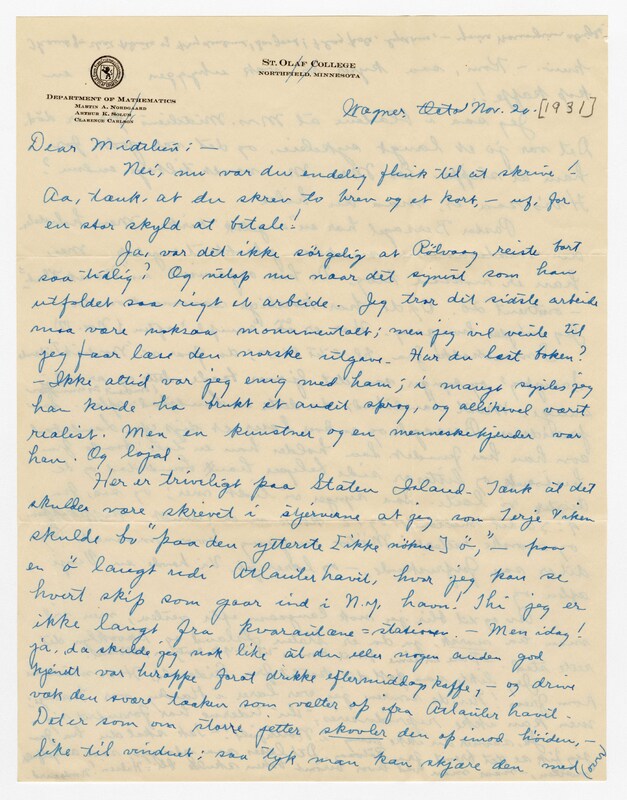 ST. OLAF COLLEGE
NORTHFIELD, MINNESOTA
DEPARTMENT OF MATHEMATICS
MARTIN A. NORDGAARD
ARTHUR K. SOLUM
CLARENCE CARLSON
Wagner, Nov. 20. [1931]
Dear Midtlien: —
Nei, nu var du endelig flink til at skrive!
Aa, tænk, at du skrev to brev og et kort — uf, for
en stor skyld at betale!
Ja, var det ikke sörgelig at Rölvaag reiste bort
saa tidlig? Og netop nu naar det synist som han
utfoldet saa rigt et arbeide. Jeg tror det sidste arbeide
maa være noksaa monumentalt; men jeg vil vente til
jeg faar læse den norske utgave. Har du læst boken?
— Ikke altid var jeg enig med ham; i mangt synles jeg
han kunde ha brukt et andet sprog, og allikevel været
realist. Men en kunstner og en menneskekjender var
han. Og lojal.
Her er triveligt paa Staten Island. Tænk at det
skulde være skrevet i stjernerne at jeg som Terje Viken
skulde bo "paa den ytterste [ikke nökne] ö," — paa
en ö langt udi Atlanterhavet, hvor jeg kan se
hvert skip som gaar ind i N.Y. havn! Thi jeg er
ikke langt fra kvarantæne=stationen. — Men idag!
ja, da skulde jeg nok like at du eller nogen anden god
kjendt var heroppe forat drikke eftermiddagskaffe, — og drive
væk den svære taaken som vælter op ifra Atlanterhavet.
Det er som om större jetter skovler den op imod höiden, —
like til vinduet; saa tyk man kan skjære den med
(over)